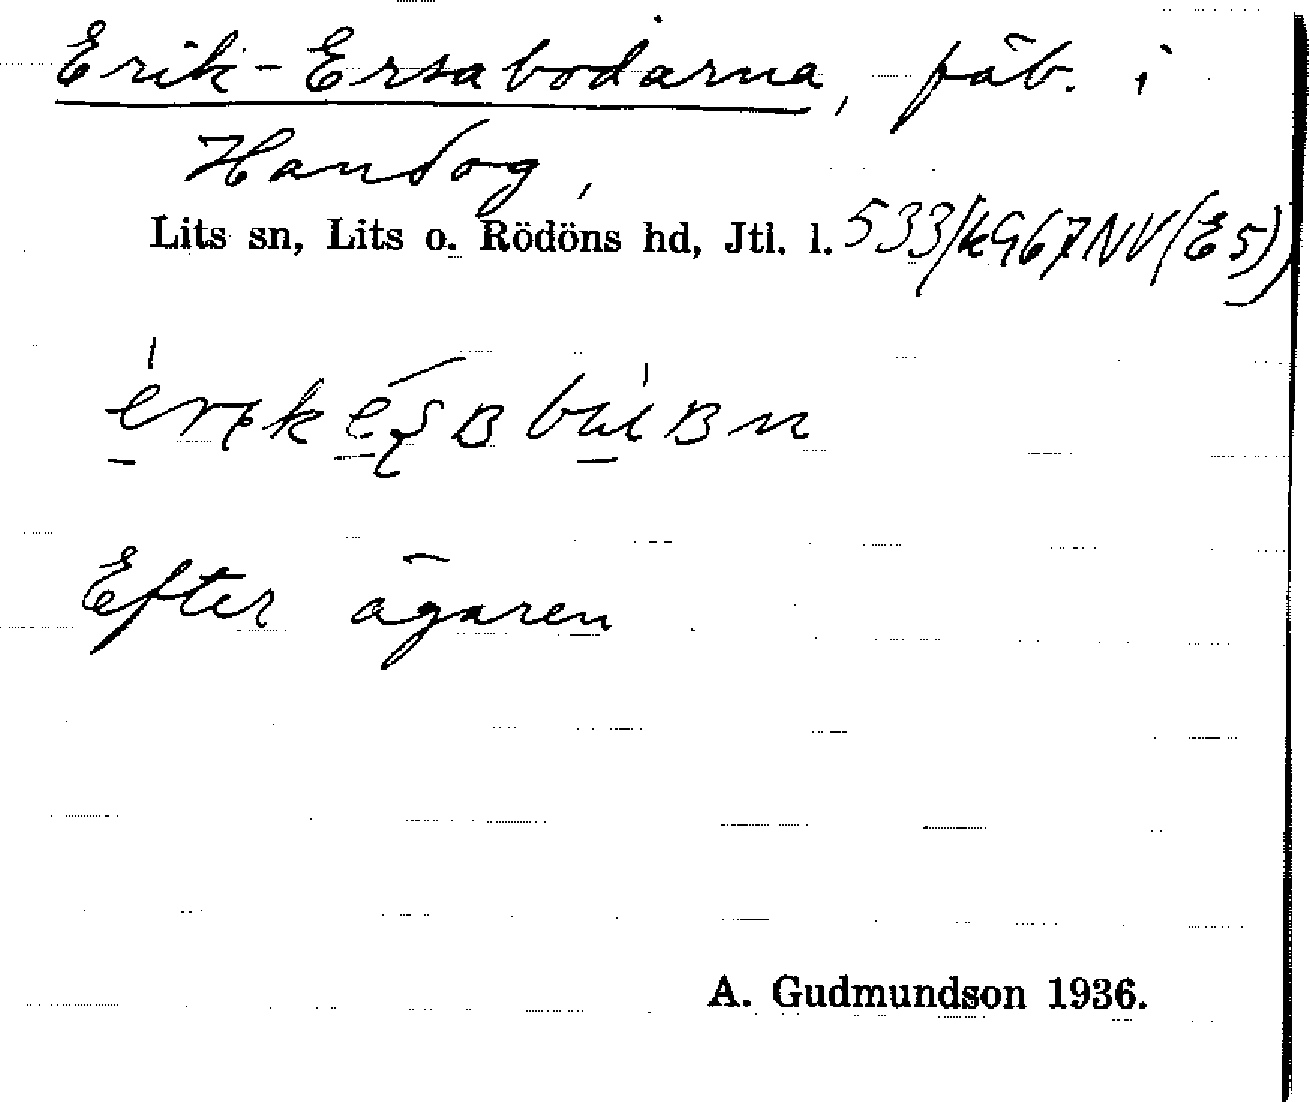 Erik-Ersabodarna, fäb. i
Handog,
Lits sn, Lits o. Rödöns hd, Jtl. l. 533/k967NV(E5)
Efter ägaren
A. Gudmundson 1936.